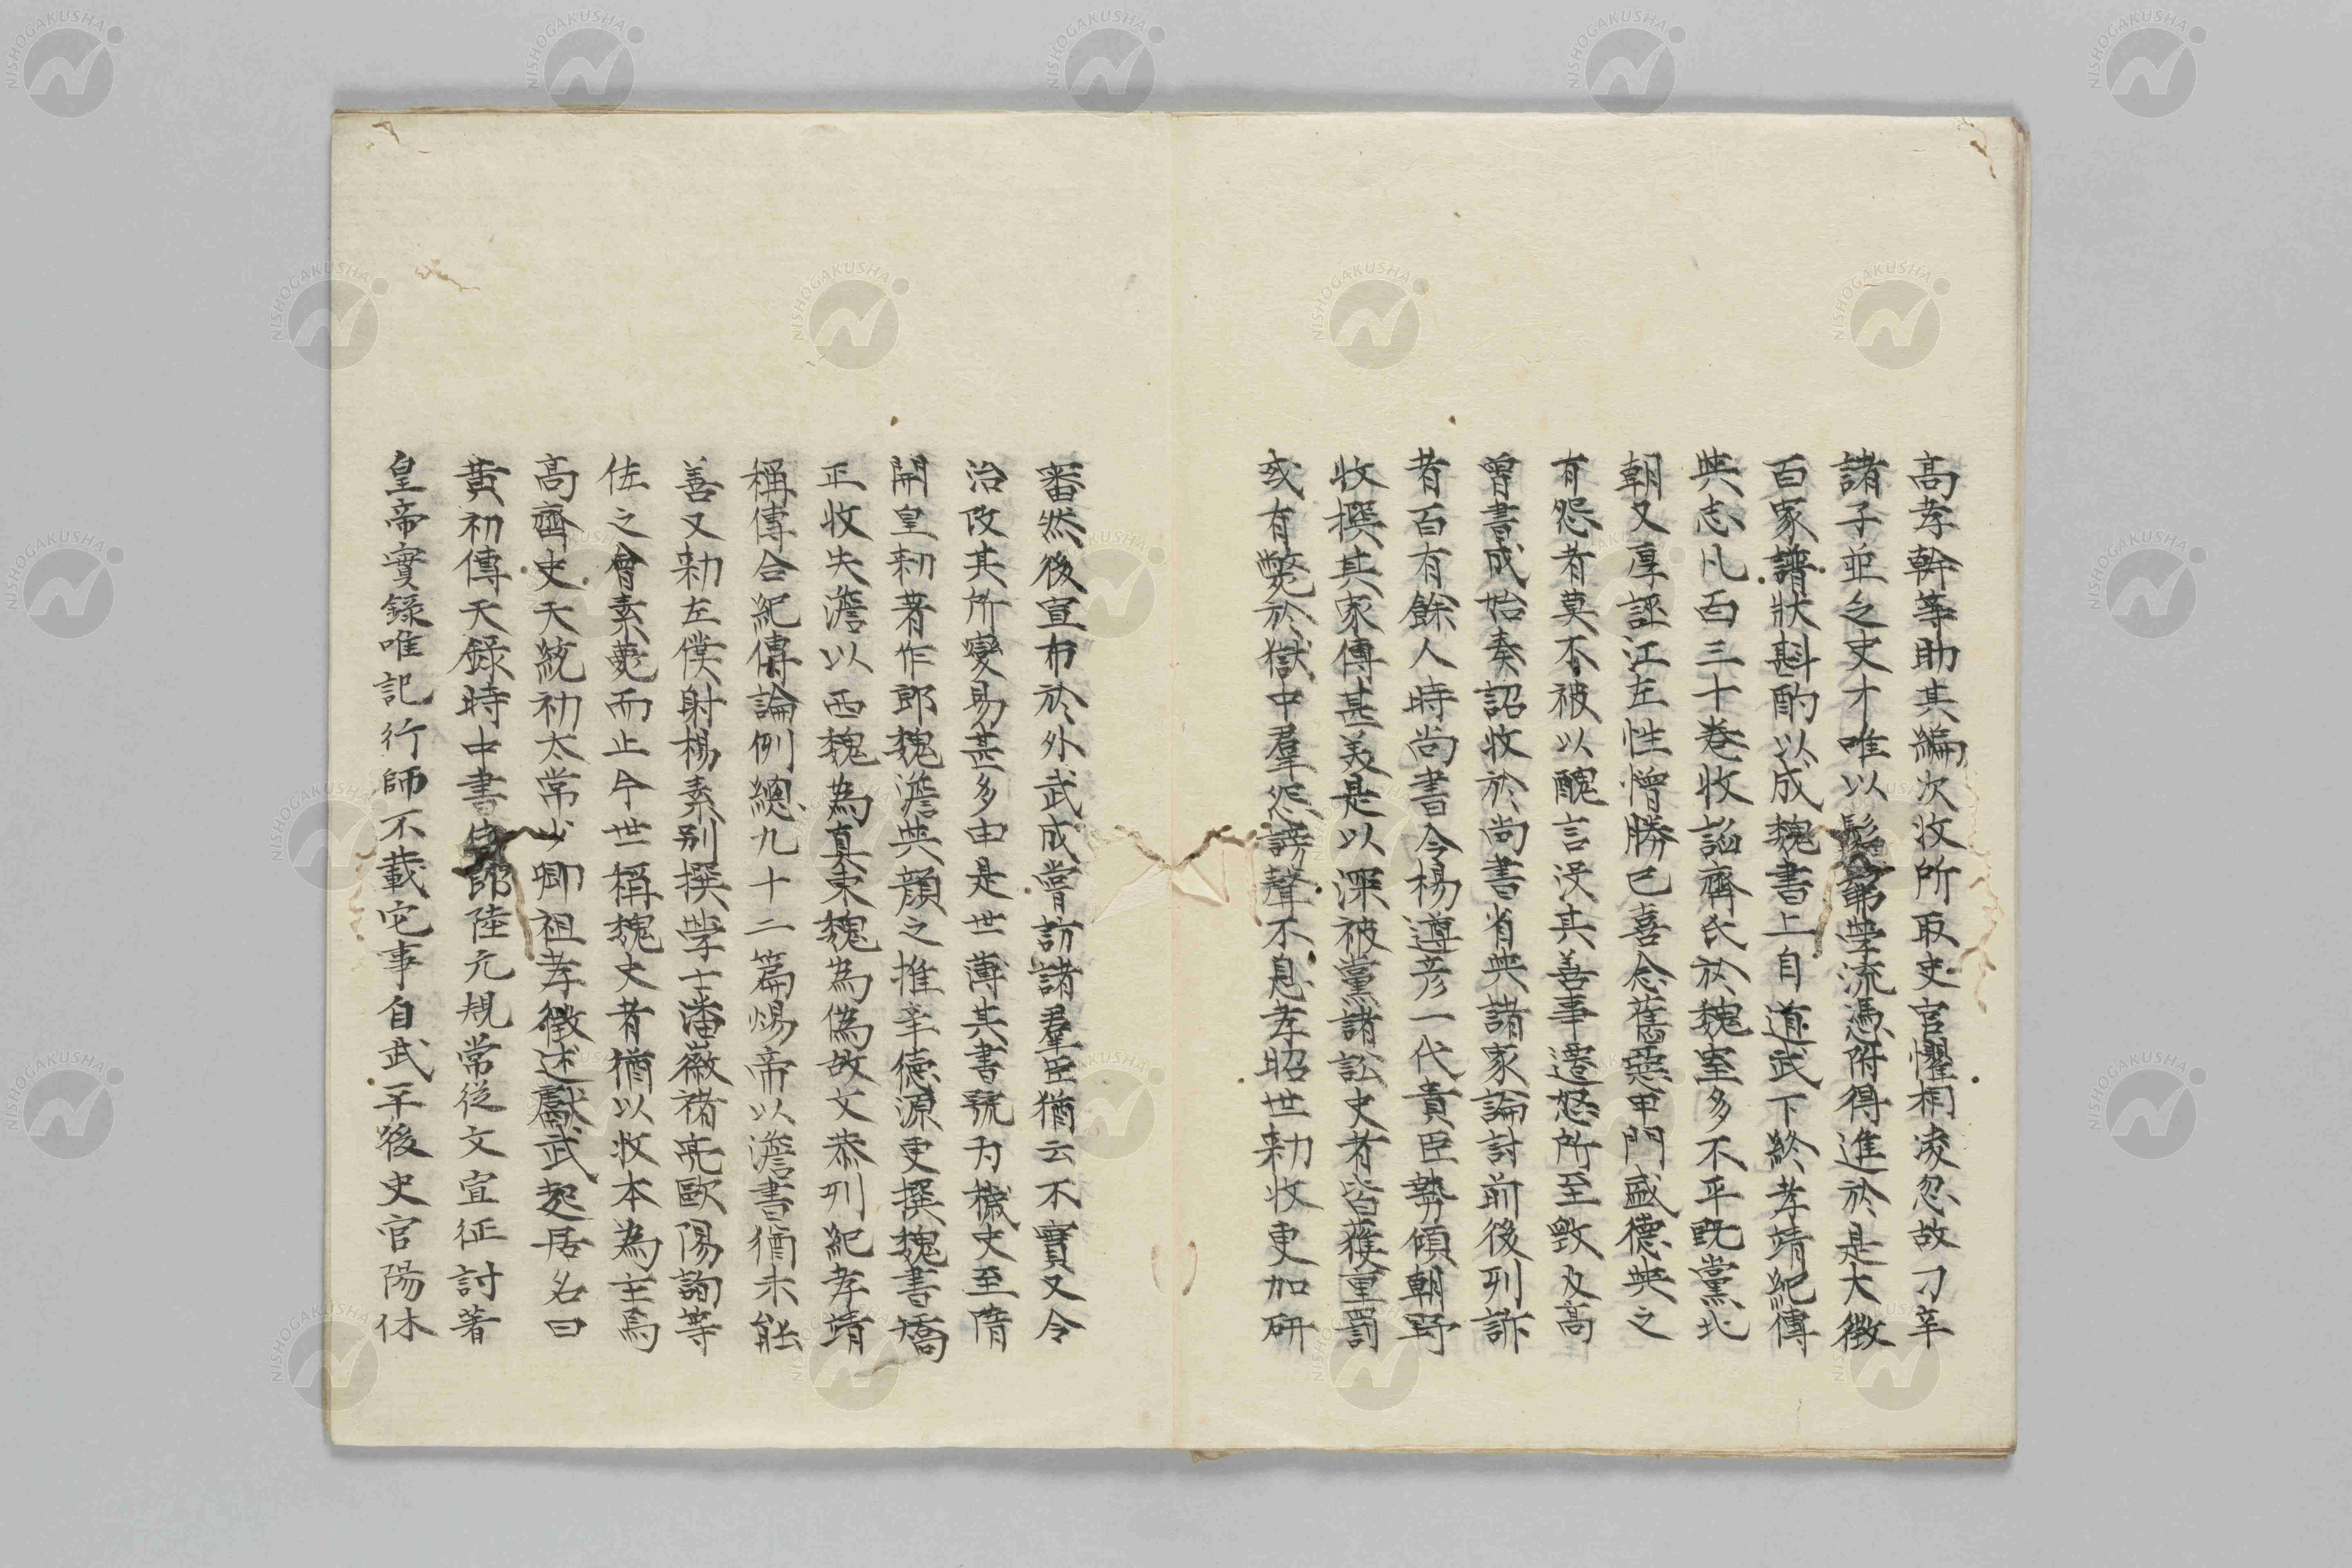 高孝幹等助其編次收所取史官懼相凌忽故刁辛
諸子並乏史才唯以學流憑附得進於是大徵
百家譜狀斟酌以成魏書上自道武下終孝靖紀傳
與志凡百三十卷收諂齊氏於魏室多不平既黨北
朝又厚誣江左性憎勝己喜念舊惡甲門盛德與之
有怨者莫不被以醜言沒其善事遷怒所至毀及高
曾書成始奏詔收於尚書省與諸家論討前後列訴
者百有餘人時尚書令楊遵彦一代貴臣勢傾朝野
收撰其家傳甚美是以深被黨諸訟史者皆獲重罰
或有斃於獄中羣怨謗聲不息孝昭世勅收更加研
審然後宣布於外武成嘗訪諸羣臣猶云不實又令
治改其所變易甚多由是世薄其書號為穢史至隋
開皇勅著作郎魏澹與顔之推辛德源更撰魏書矯
正收失澹以西魏為真東魏為偽故文恭列紀孝靖
稱傳合紀傳論例總九十二篇煬帝以澹書猶未能
善又勅左僕射楊素別撰學士潘徽褚亮歐陽詢等
佐之會素薨而止今世稱魏史者猶以收本為主焉
高齊史天統初太常少卿祖孝徵述獻武起居名曰
黃初傳天錄時中書郎陸元規常從文宣征討著
皇帝實錄唯記行師不載它事自武平後史官陽休
NISHOGAKUSHA